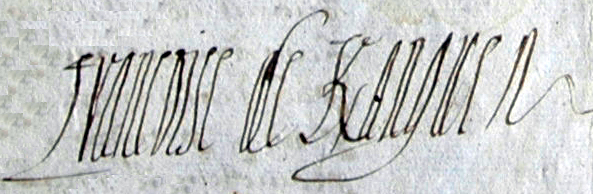 Francoise de Kanguen